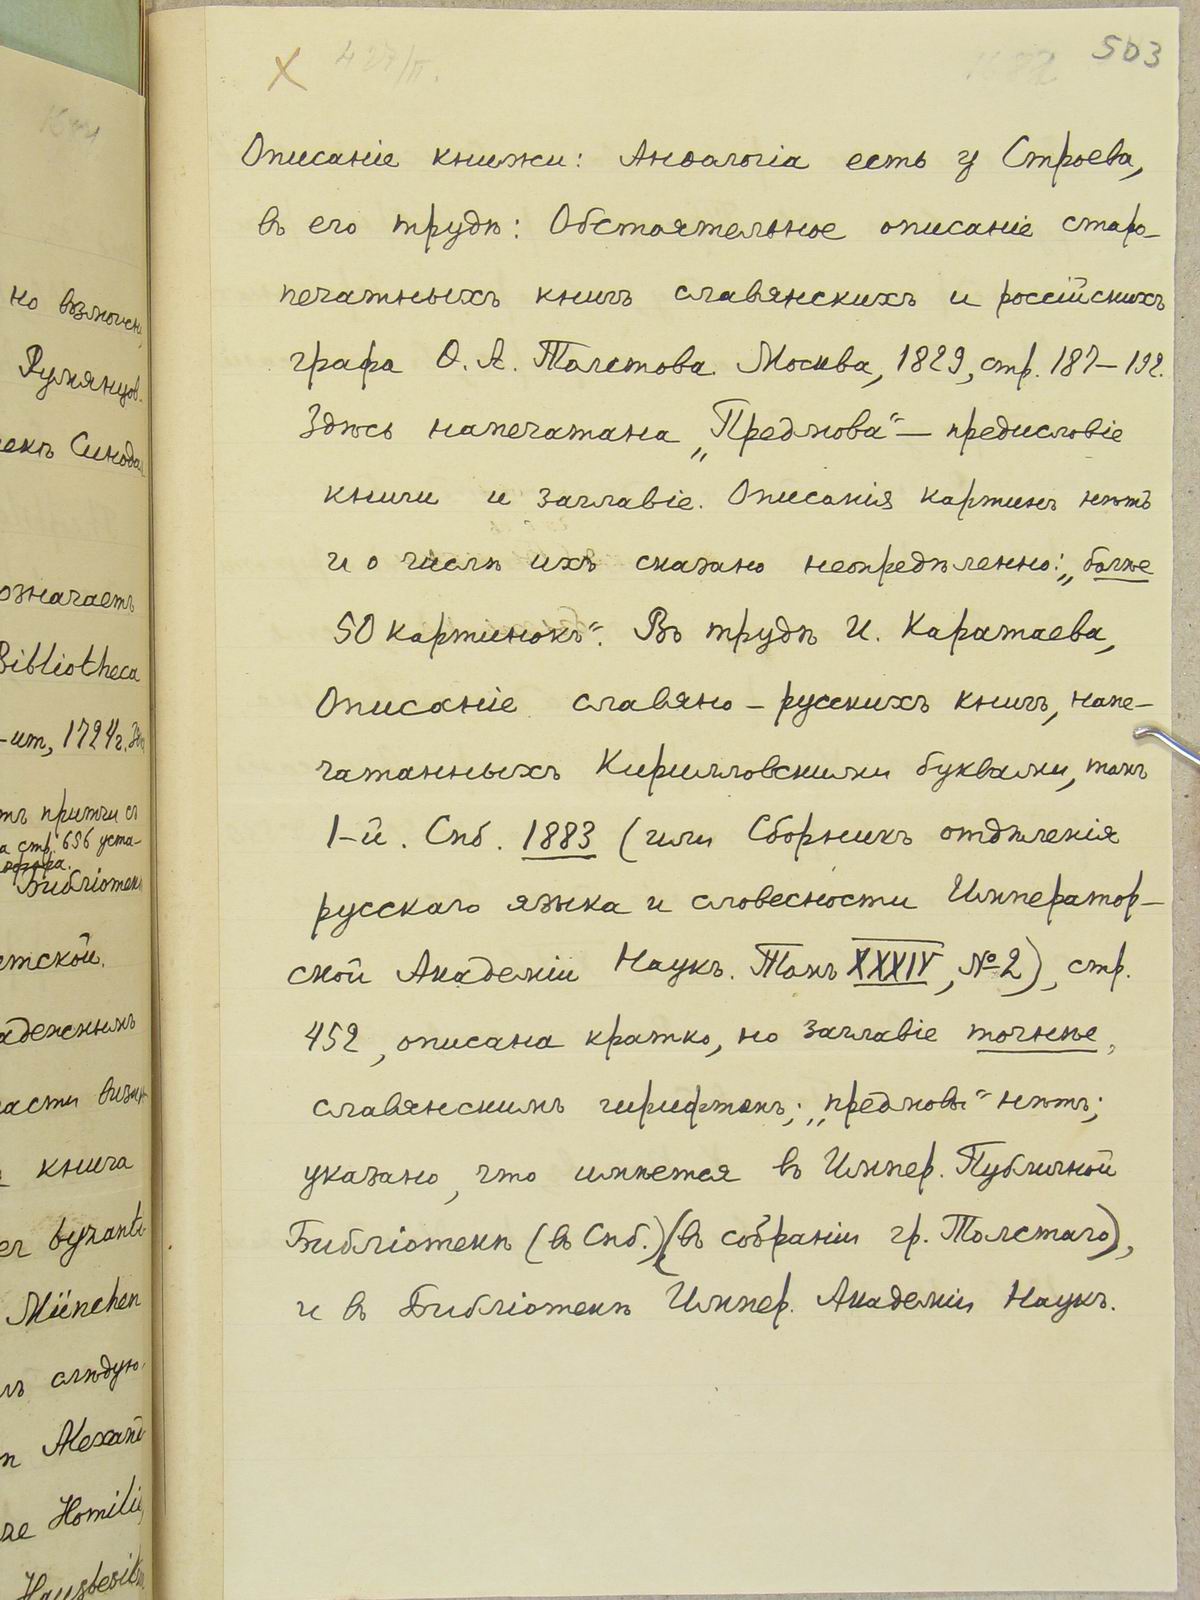 503
Х 427/п.
Описаніе книжки: Анѳалогіа есть у Строева,
въ его трудѣ: Обстоятельное описаніе старо-
печатныхъ книгъ славянскихъ и россійскихъ
графа Ѳ. А. Толстова. Москва, 1829, стр. 187–192.
Здѣсь напечатана „Предмова“ — предисловіе
книги и заглавіе. Описанія картинъ нѣтъ
и о числѣ ихъ сказано неопредѣленно: „болѣе
50 картинокъ“. Въ трудѣ И. Каратаева,
Описаніе славяно-русскихъ книгъ, напе-
чатанныхъ Кирилловскими буквами, томъ
1-й. Спб. 1883 (или Сборникъ отдѣленія
русскаго языка и словесности Император-
ской Академіи Наукъ. Томъ XXXIV, №2), стр.
452, описана кратко, но заглавіе точнѣе,
славянскимъ шрифтомъ; „предмовы“ нѣтъ;
указано, что имѣется въ Импер. Публичной
Библіотекѣ (въ Спб.) (въ собраніи гр. Толстаго),
и въ Библіотекѣ Импер. Академіи Наукъ.
но возможн
Румянцов-
екѣ Синода
означаетъ
Bibliotheca
-ит, 1724г.
притчи съ
стр. 656 уста-
Библіотек
етской.
адежнымъ
асти визан
книга
er byzanti
München
слѣдую-
n Alexand
re Homili
Hausbesit